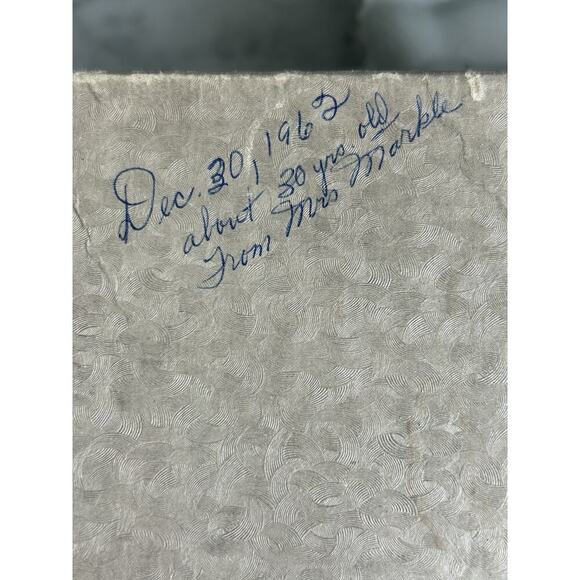 Dec. 30, 1962
about 30 yrs. old
From Mrs Markle